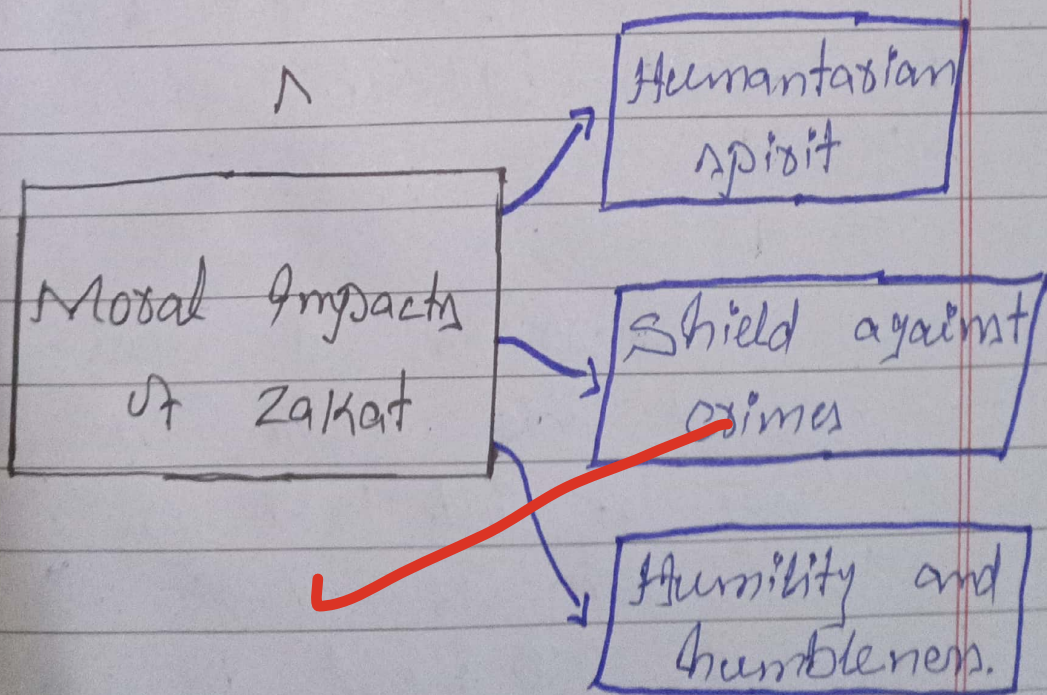 Moral Impacts
of Zakat
Humantarian
spirit
Shield against
crimes
Humility and
humbleness.